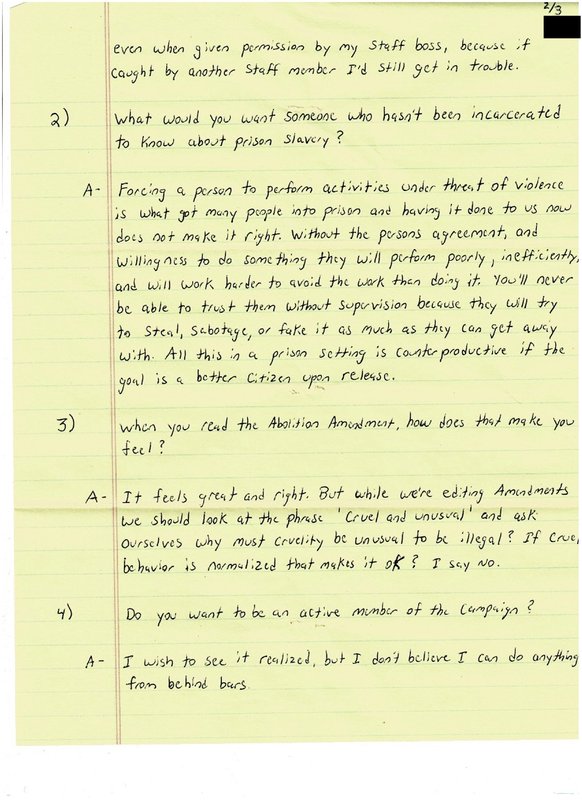 2/3
even when given permission by my staff boss, because if
caught by another staff member I'd still get in trouble.
2)
What would you want someone who hasn't been incarcerated
to know about prison slavery?
A- Forcing a person to perform activities under threat of violence
is what got many people into prison and having it done to us now
does not make it right. Without the persons agreement, and
willingness to do something they will perform poorly, inefficiently,
and will work harder to avoid the work than doing it. You'll never
be able to trust them without supervision because they will try
to steal, sabotage, or fake it as much as they can get away
with. All this in a prison setting is counterproductive if the
goal is a better citizen upon release.
3)
When you read the Abolition Amendment, how does that make you
feel?
A- It feels great and right. But while we're editing Amendments
we should look at the phrase 'Cruel and unusual' and ask
ourselves why must cruelity be unusual to be illegal? If cruel
behavior is normalized that makes it ok? I say no.
4)
Do you want to be an active member of the campaign?
A- I wish to see it realized, but I don't believe I can do anything
from behind bars.